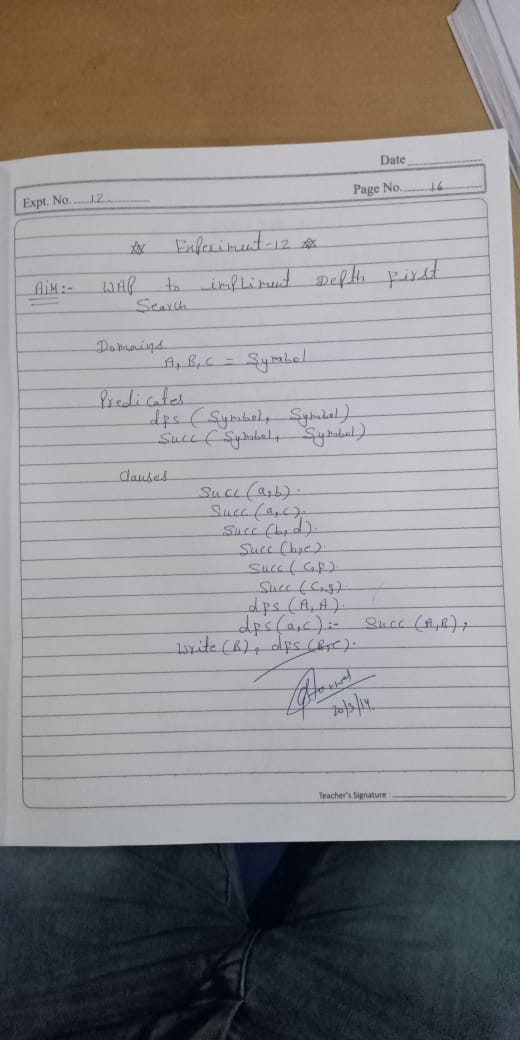 Date
Expt. No. 12
Page No. 16
☆ Experiment-12 ☆
AiM:- WAP to impliment Depth first
Search
Domains
A, B, C = Symbol
Predicates
dfs (Symbol, Symbol)
Succ (Symbol, Symbol)
Clauses
Succ (a,b).
Succ (a,c).
Succ (b,d).
Succ (b,e).
Succ (c,f).
Succ (c,g).
dfs (A,A).
dfs (a,c) :- Succ (A,B),
write (B), dfs (B,C).
Teacher's Signature :